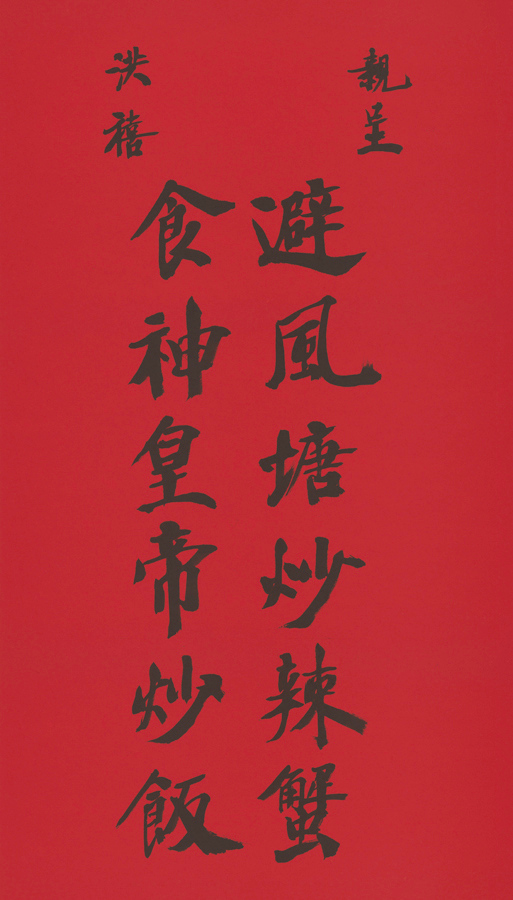 親呈
洪禧
避風塘炒辣蟹
食神皇帝炒飯